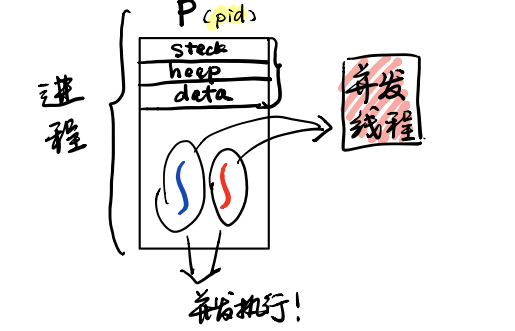 P (pid)
进程
stack
heap
data
并发
线程
并发执行!